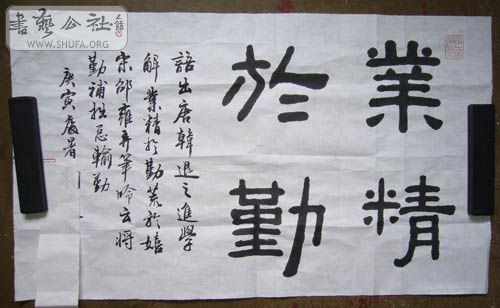 書藝公社
WWW.SHUFA.ORG
業精
於勤
語出唐韓退之進學
解業精於勤荒於嬉
宋邵雍弄筆吟云將
勤補拙總輸勤
庚寅處暑